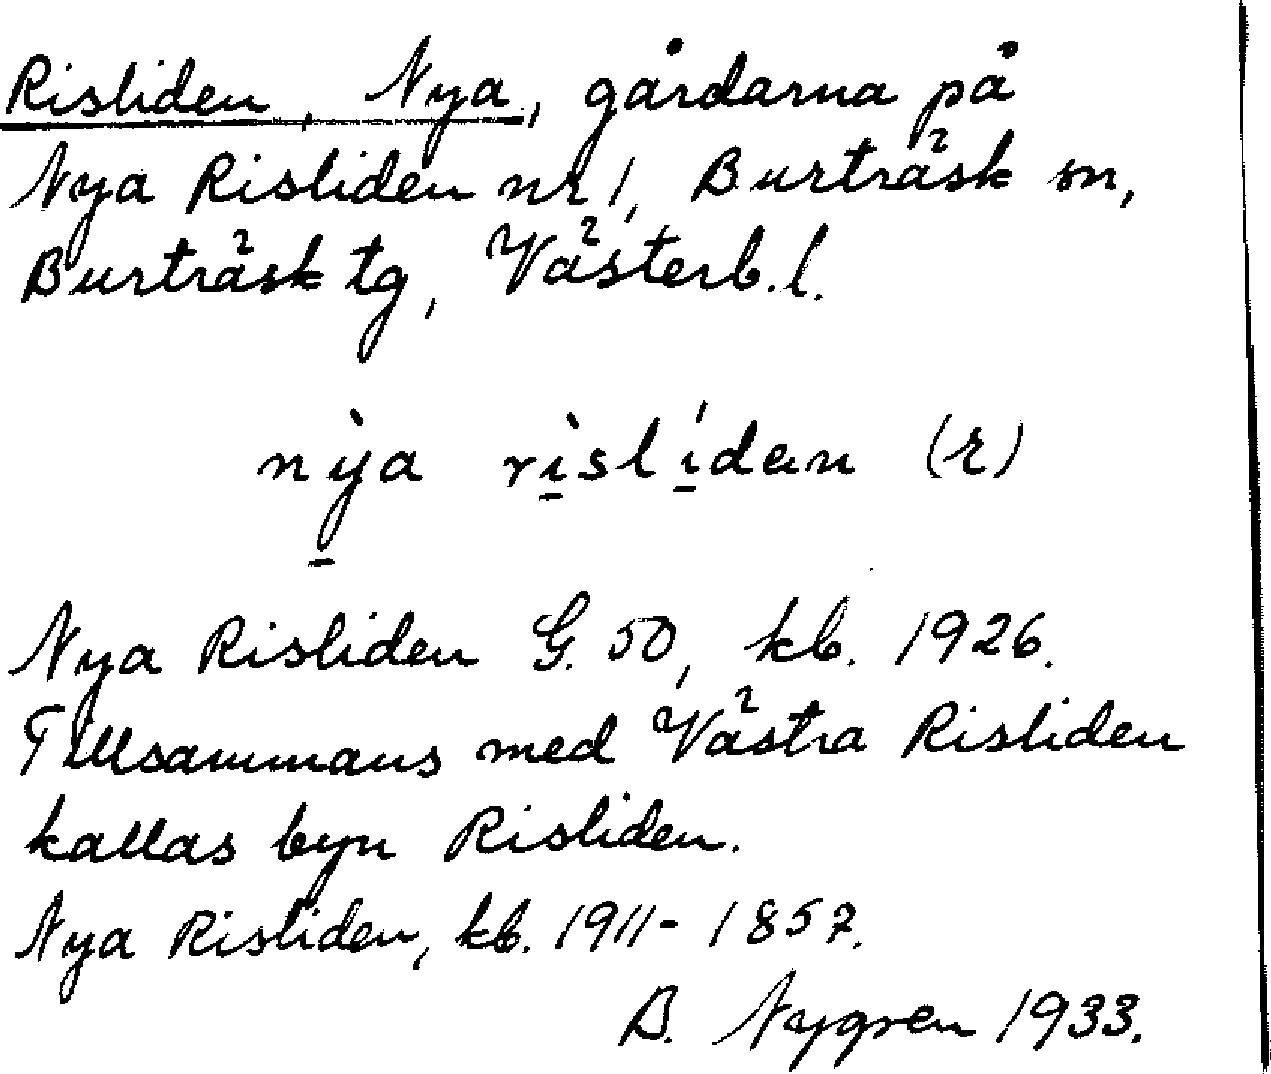 Risliden, Nya, gårdarna på
Nya Risliden nr 1, Burträsk sn,
Burträsk tg, Västerb. l.
nỳa rìslíden (r)
Nya Risliden G. 50, kb. 1926.
Tillsammans med Västra Risliden
kallas byn Risliden.
Nya Risliden, kb. 1911-1857.
B. Nygren 1933.